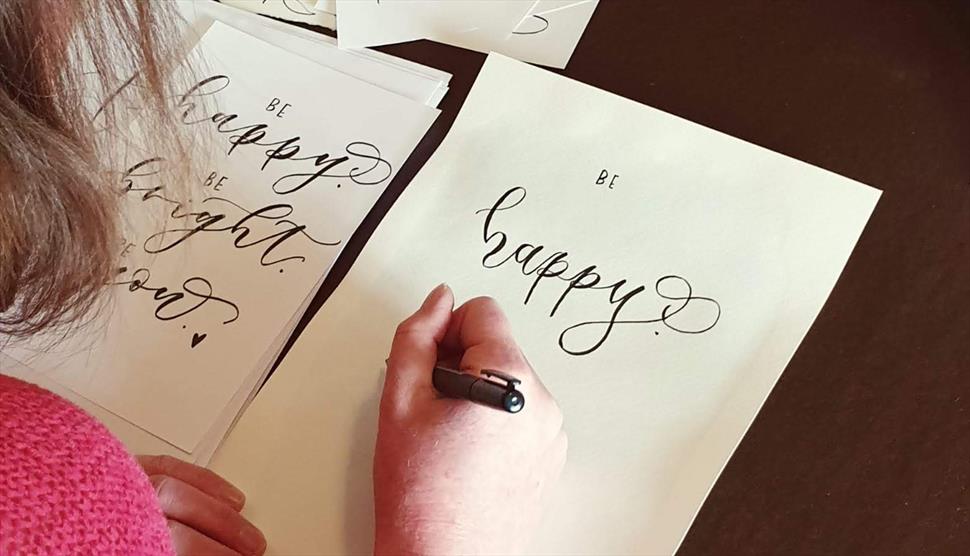 BE
happy.
BE
bright.
BE
BE
happy.